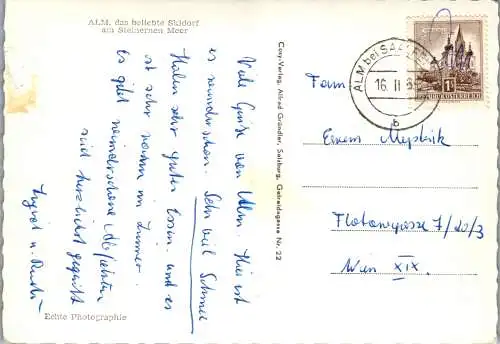 ALM, das beliebte Skidorf
am Steinernen Meer
Viele Grüße von Alm. Hier ist
es wunderschön. Sehr viel Schnee
Haben sehr gutes Essen und es
ist sehr warm im Zimmer.
Es gibt wunderschöne
seid herzlichst gegrüßt
Ingrid u.
Echte Photographie
Cosy-Verlag, Alfred Gründler, Salzburg, Getreidegasse Nr. 22
ALM bei SAALFELDEN
16. II.
b
REPUBLIK ÖSTERREICH
Fam
Flotowgasse 7/20/3
Wien XIX